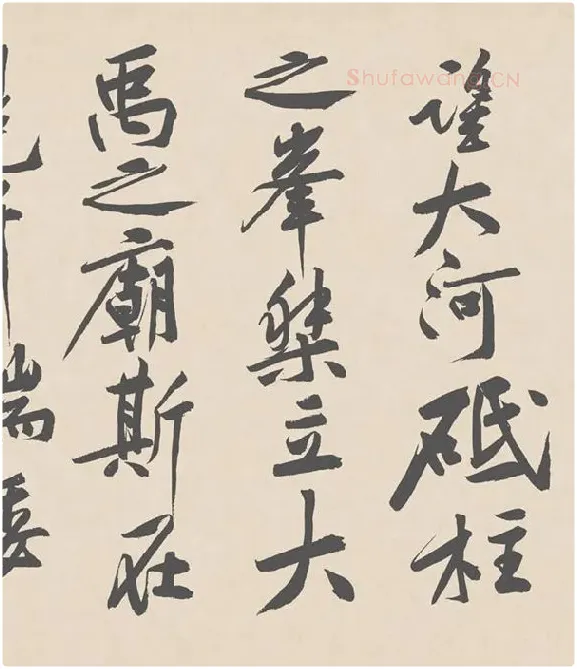 Shufawang.CN
望大河砥柱
之峯桀立大
禹之廟斯在
端委